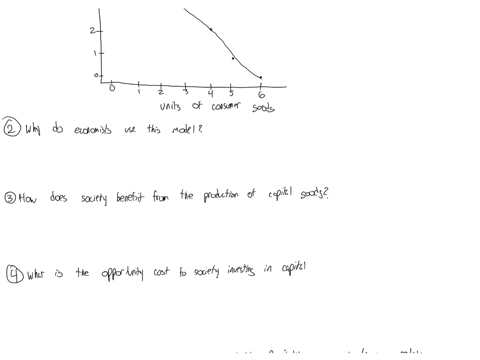 2
1
0
0 1 2 3 4 5 6
units of consumer goods
② Why do economists use this model?
③ How does society benefit from the production of capital goods?
④ What is the opportunity cost to society investing in capital